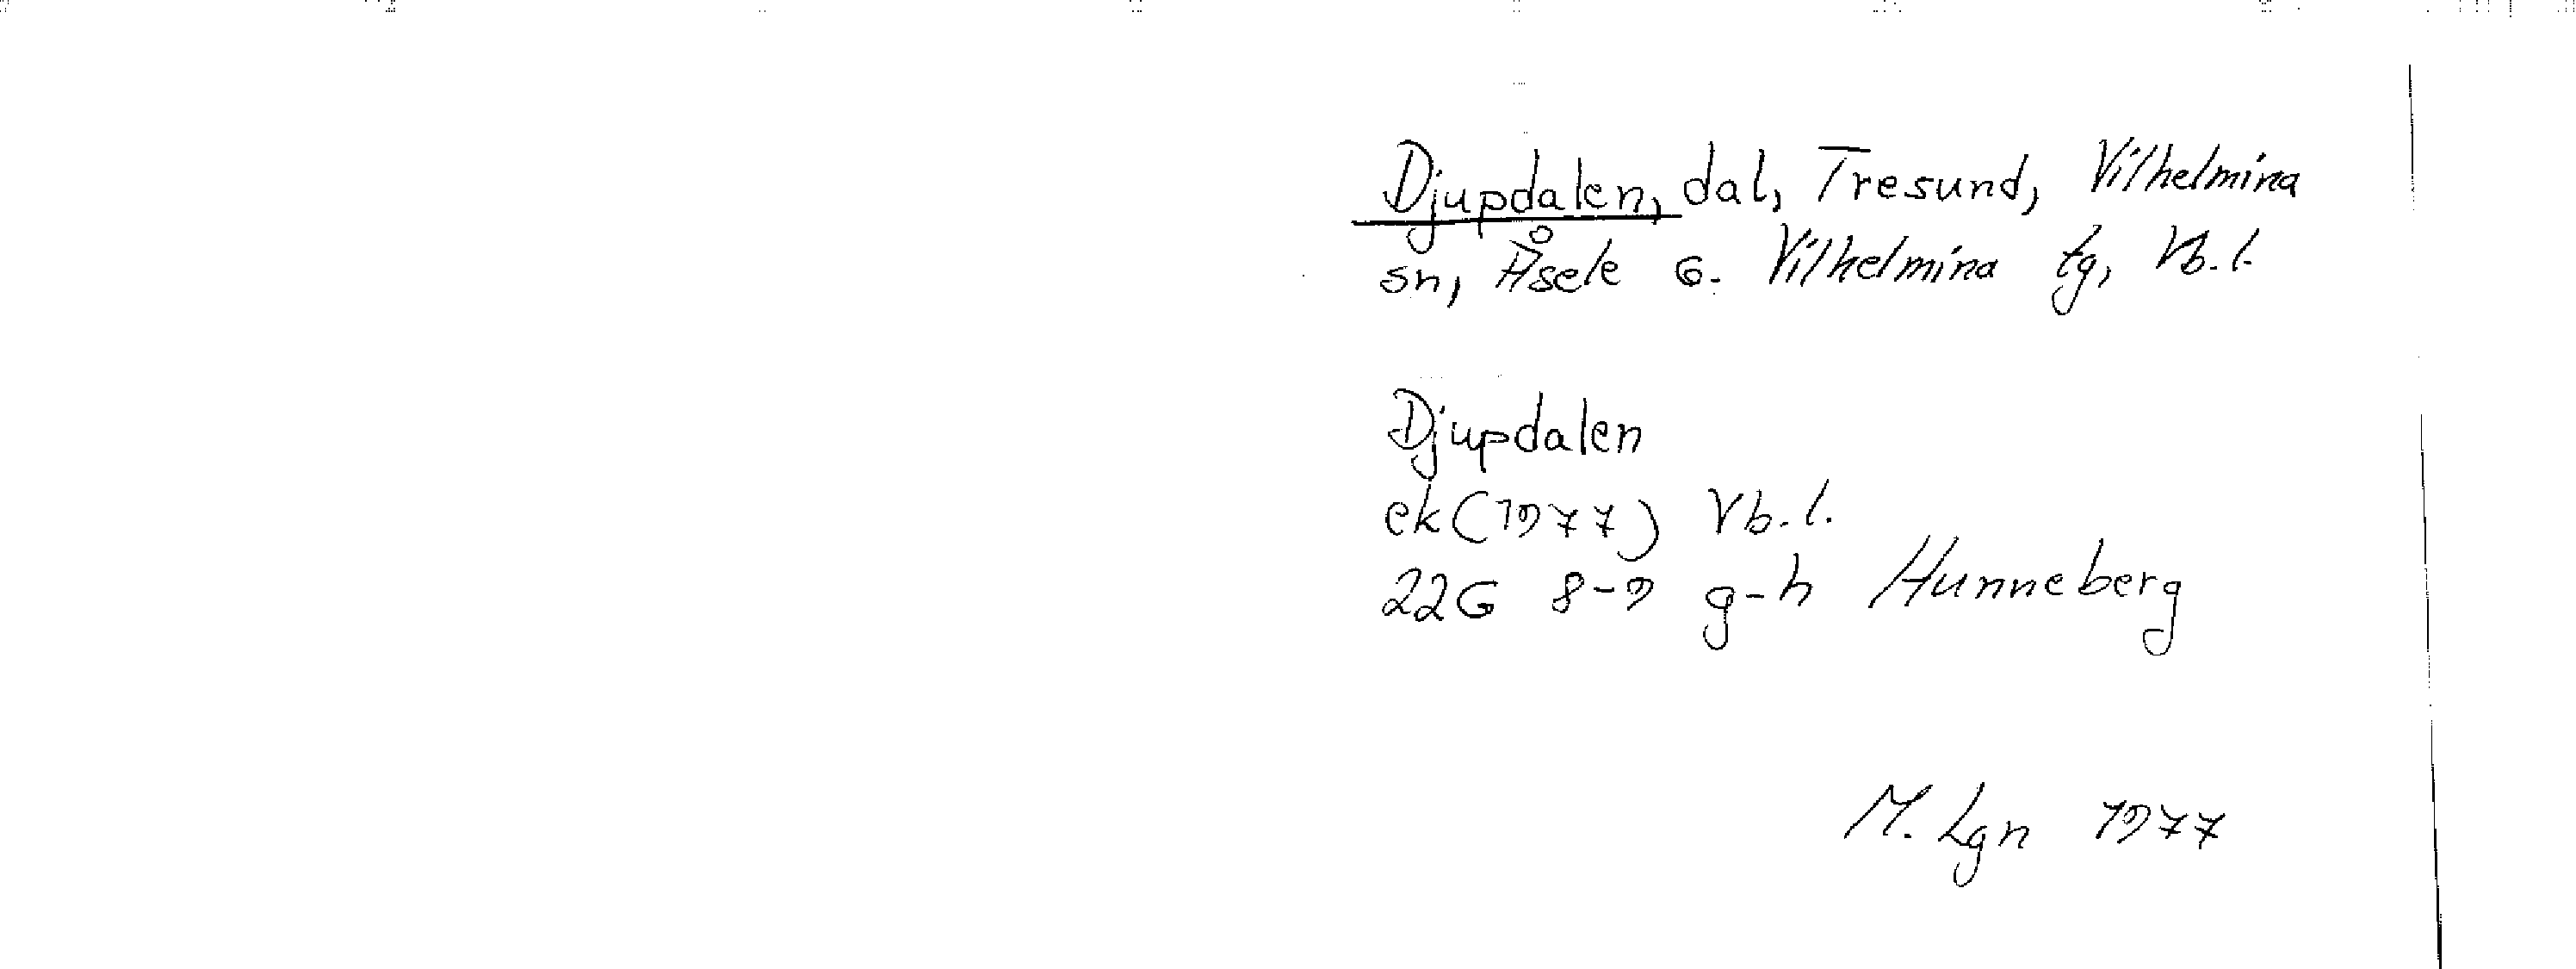 Djupdalen, dal, Tresund, Vilhelmina
sn, Åsele o. Vilhelmina tg, Vb.l.
Djupdalen
ek (1977) Vb.l.
22G 8-9 g-h Hunneberg
M. Lgn 1977